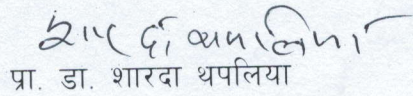 शारदा थपलिया
प्रा. डा. शारदा थपलिया